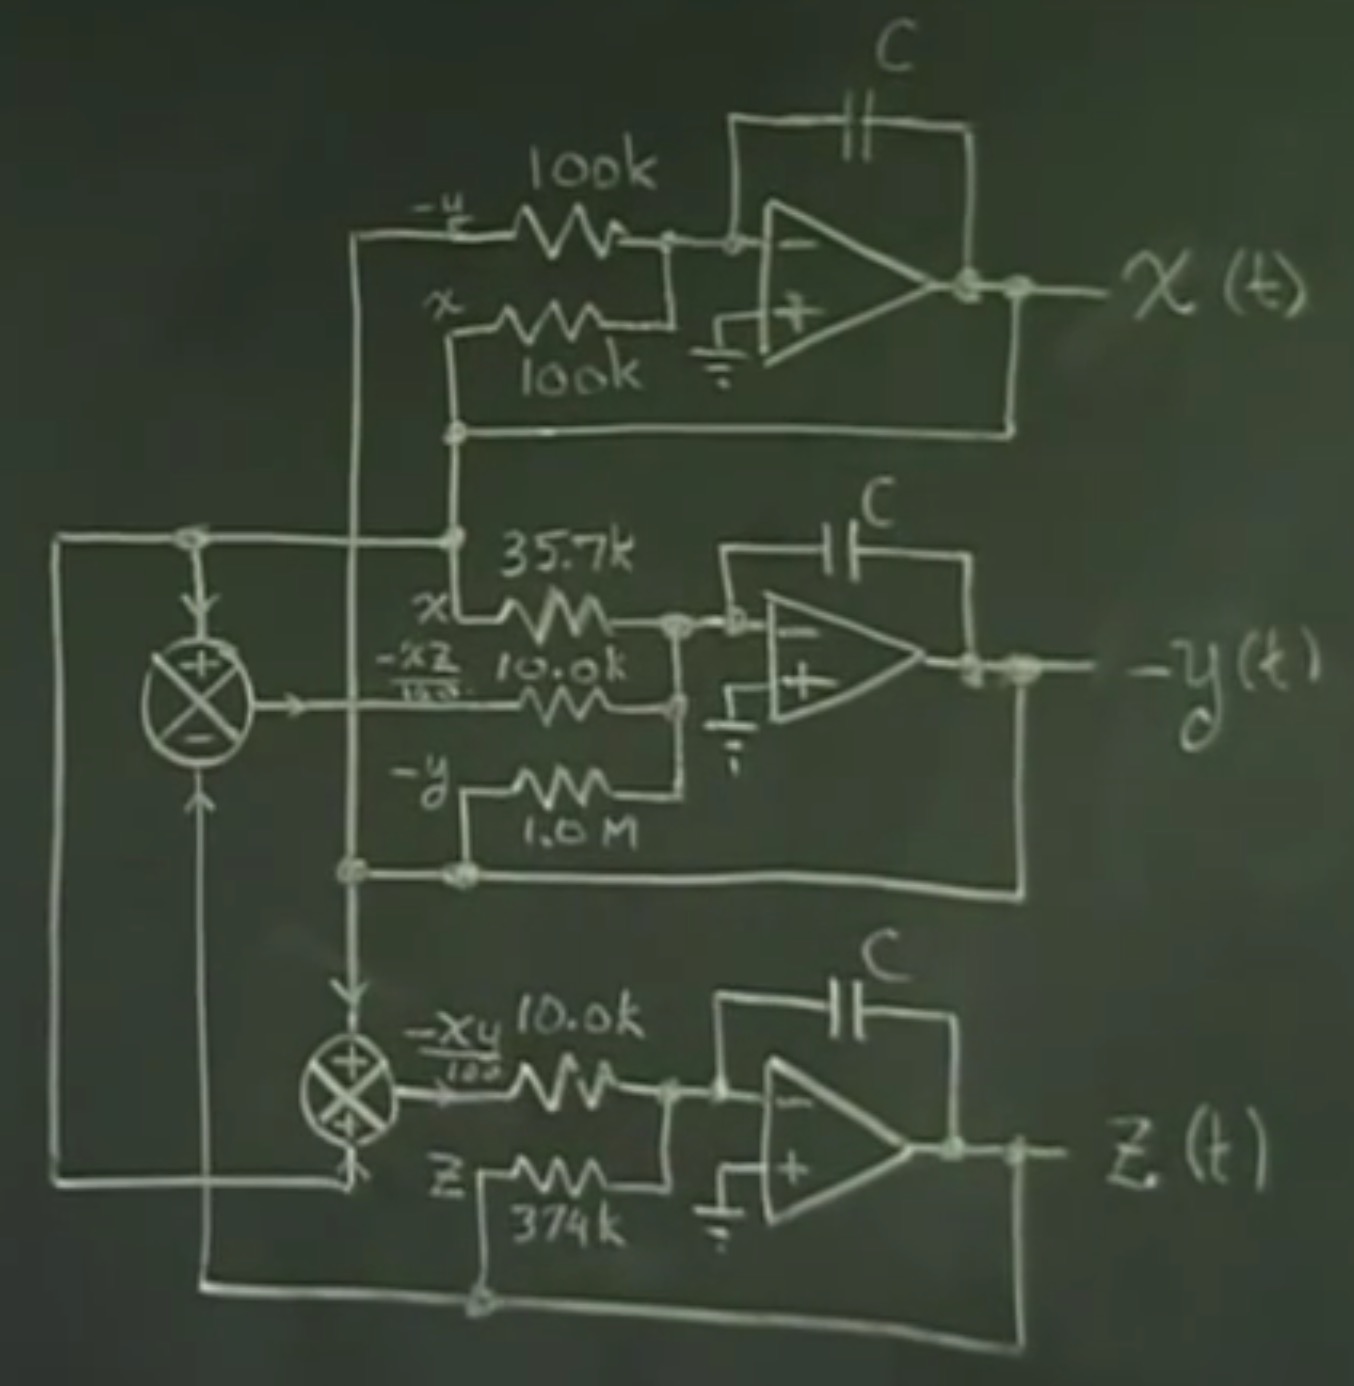 C
100k
-y
x
100k
- +
x(t)
C
35.7k
x
-xz/100
10.0k
-y
1.0M
+ -
- +
-y(t)
C
-xy/100
10.0k
+ +
z
374k
- +
z(t)